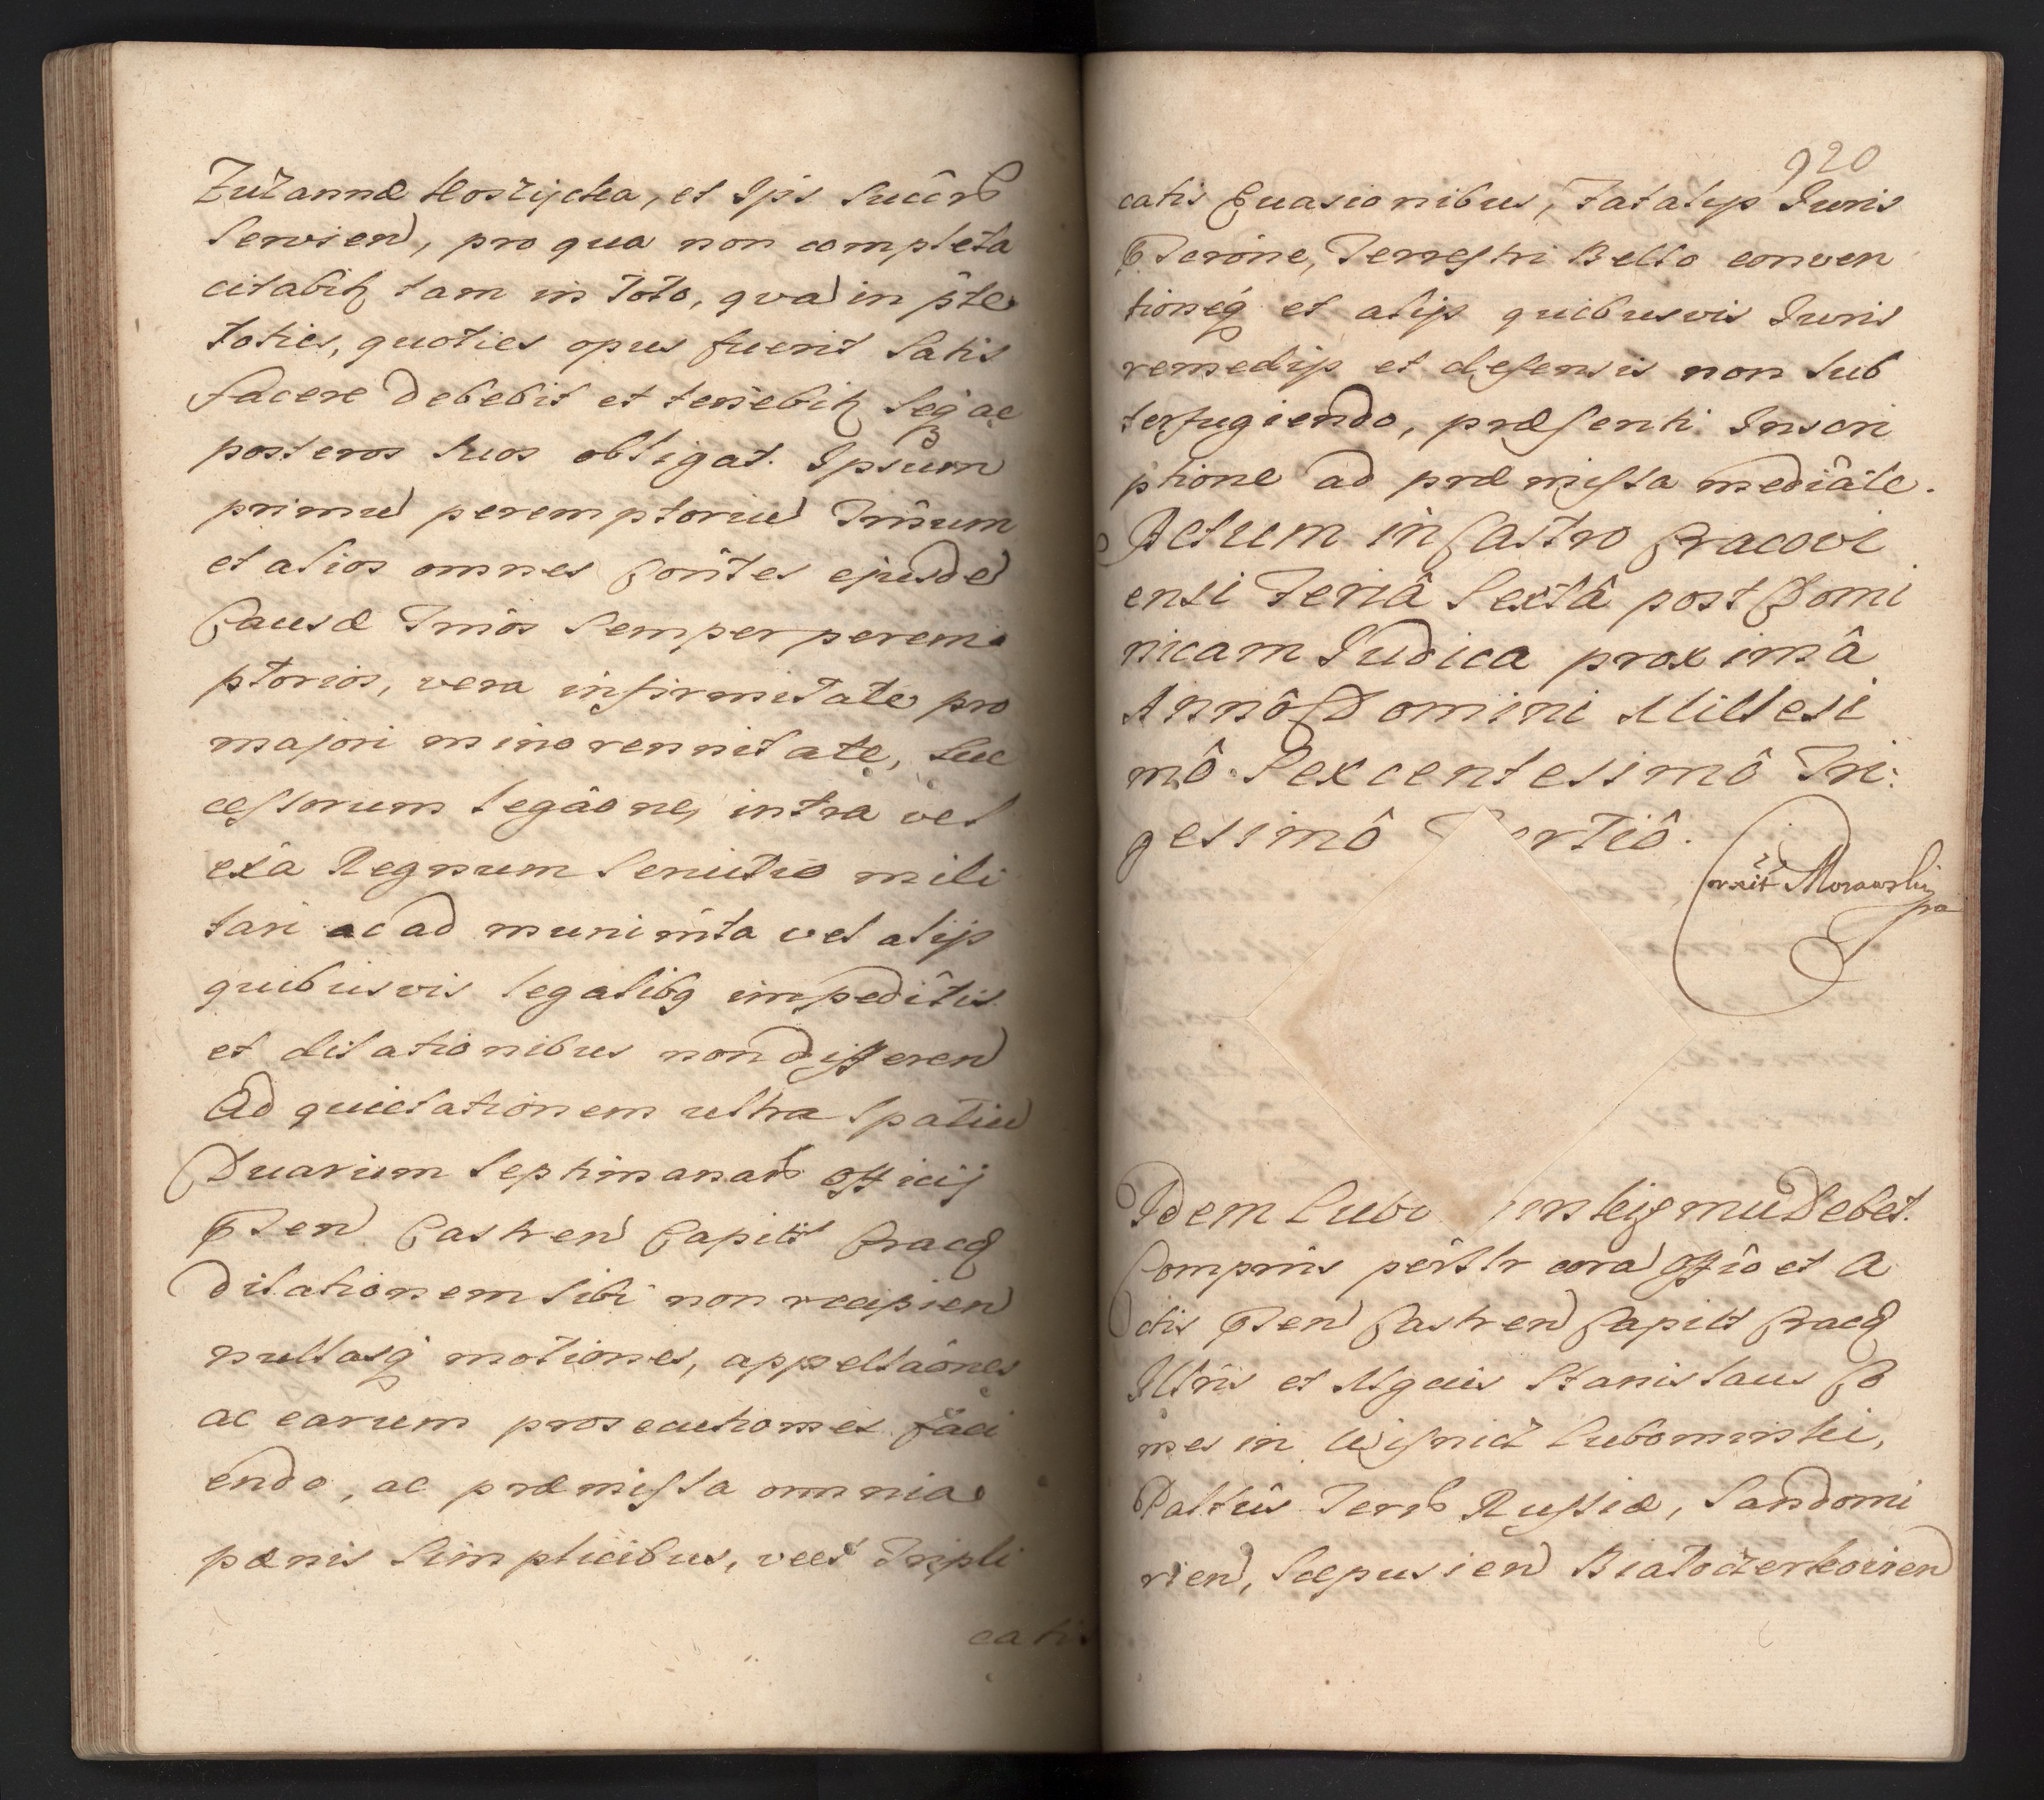 Zuzannæ Koszycka, et Ips. Succrb
servien, pro qua non completa
citabitz tam in toto, qva in pte
toties, quoties opus fuerit satis
facere debebit et tenebitz seq ac
posteros suos obligat. Ipsum
primu peremptoriu Trnum
et alios omnes Contes ejusde
Causæ Trnos semper perem
ptorios, vera infirmitate pro
majori minorennitate, suc
cessorum legâone, intra vel
exa Regnum Seruitio mili
tari ac ad munimta vel alijs
quibusvis legalibq impedîtis
et dilationibus non differen
Ad quietationem ultra spatiu
Duarum septimanarb officij
Pten Castren Capitl Cracq
dilationem sibi non recipien
nullasq motiones, appellaônes
ac earum prosecutiones faci
endo, ac præmissa omnia
pænis simplicibus, vel Tripli
catis
920
catis Euasionibus, Fatalijs Juris
Terrestri Bello conven
tioneq et alijs quibusvis Juris
remedijs et defensis non sub
terfugiendo, præsenti Inscri
ptione ad præmissa mediâte.
Actum in Castro Cracovi
ensi Feriâ Sextâ post Domi
nicam Judica proximâ
Annô Domini Millesi
mô Sexcentesimô Tri:
gesimô Tertiô.
Corrxit Morawski
Idem Lubo mski debet.
Comprns persltr cora Offîo et A
ctis Pten Castren Capitl Cracq
Illris et Mgcus Stanislaus Co
mes in Wisnicz Lubomirski,
Palnus Terrb Russiæ, Sandomi
rien, Scepusien Białoczerkovien